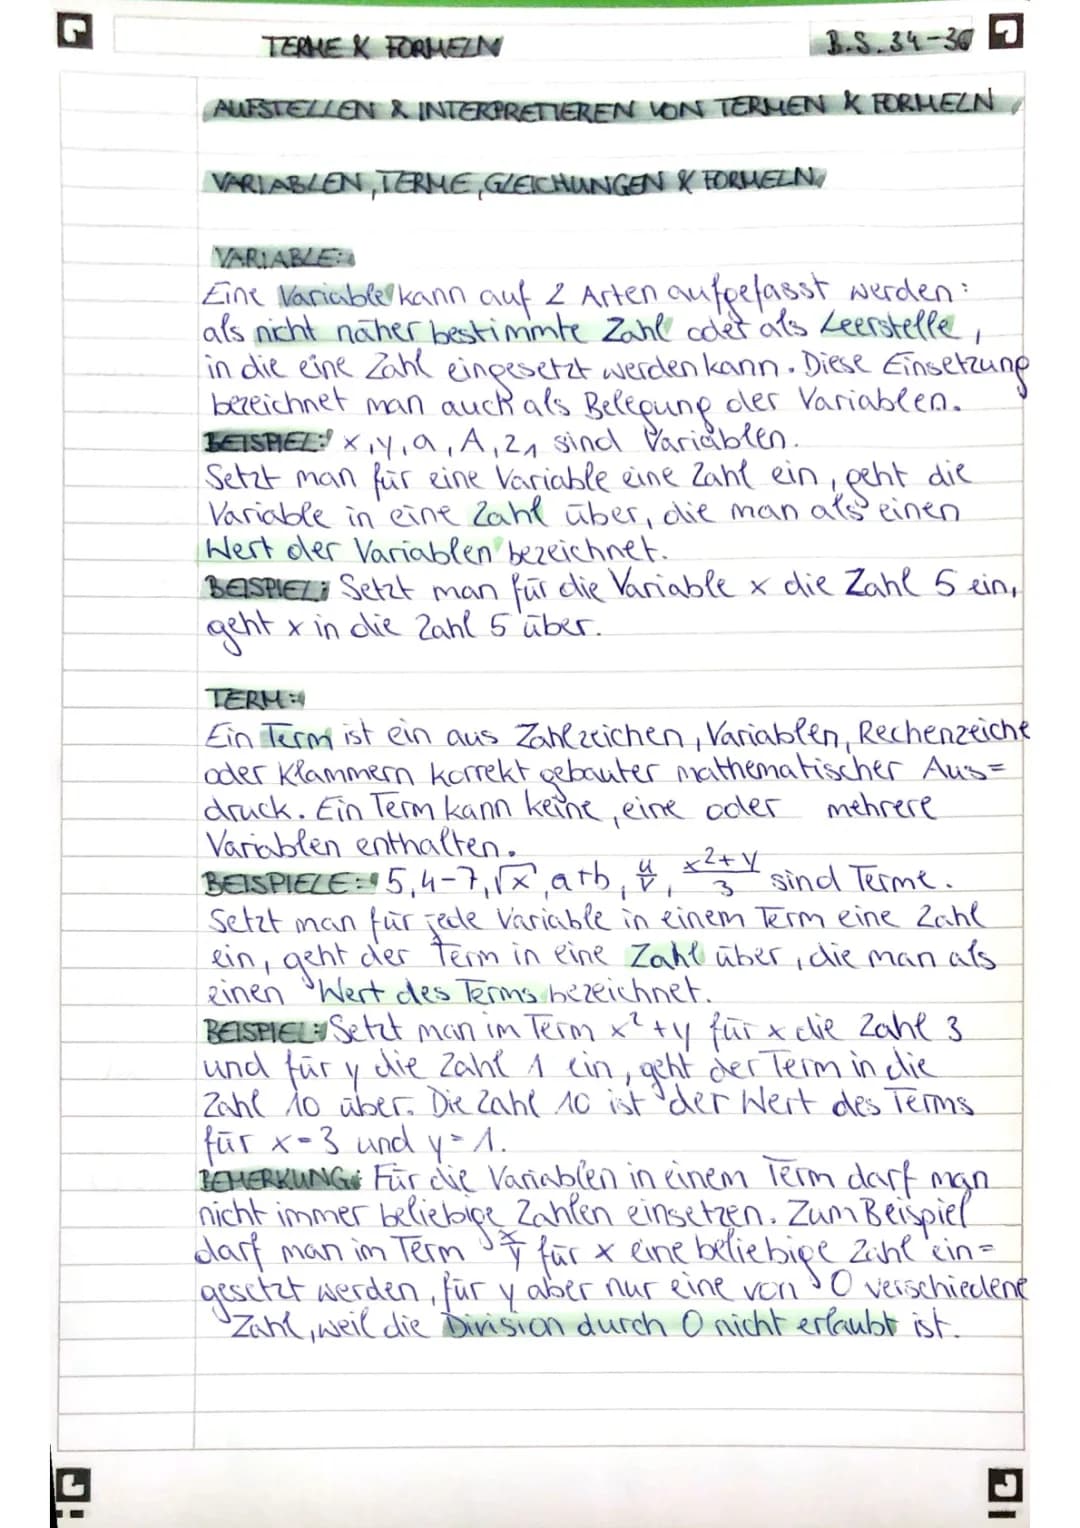 TERME & FORMELN
B.S. 34-36
AUFSTELLEN & INTERPRETIEREN VON TERMEN & FORMELN
VARIABLEN, TERME, GLEICHUNGEN & FORMELN
VARIABLE:
Eine Variable kann auf 2 Arten aufgefasst werden:
als nicht näher bestimmte Zahl oder als Leerstelle,
in die eine Zahl eingesetzt werden kann. Diese Einsetzung
bezeichnet man auch als Belegung der Variablen.
BEISPIEL: x, y, a, A, z₁ sind Variablen.
Setzt man für eine Variable eine Zahl ein, geht die
Variable in eine Zahl über, die man als einen
Wert der Variablen bezeichnet.
BEISPIEL: Setzt man für die Variable x die Zahl 5 ein,
geht x in die Zahl 5 über.
TERM:
Ein Term ist ein aus Zahlzeichen, Variablen, Rechenzeiche
oder Klammern korrekt gebauter mathematischer Aus=
druck. Ein Term kann keine, eine oder mehrere
Variablen enthalten.
BEISPIELE: 5, 4-7, √x, a+b, u/v, (x²+y)/3 sind Terme.
Setzt man für jede Variable in einem Term eine Zahl
ein, geht der Term in eine Zahl über, die man als
einen Wert des Terms bezeichnet.
BEISPIEL: Setzt man im Term x²+y für x die Zahl 3
und für y die Zahl 1 ein, geht der Term in die
Zahl 10 über. Die Zahl 10 ist der Wert des Terms
für x=3 und y=1.
BEMERKUNG: Für die Variablen in einem Term darf man
nicht immer beliebige Zahlen einsetzen. Zum Beispiel
darf man im Term x/y für x eine beliebige Zahl ein=
gesetzt werden, für y aber nur eine von 0 verschiedene
Zahl, weil die Division durch 0 nicht erlaubt ist.